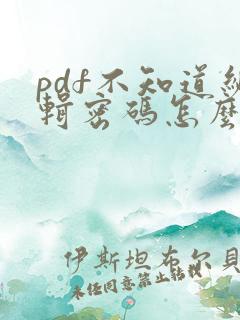 pdf不知道編
輯密碼怎麼
伊斯坦布尔貝
未经同意禁止转载